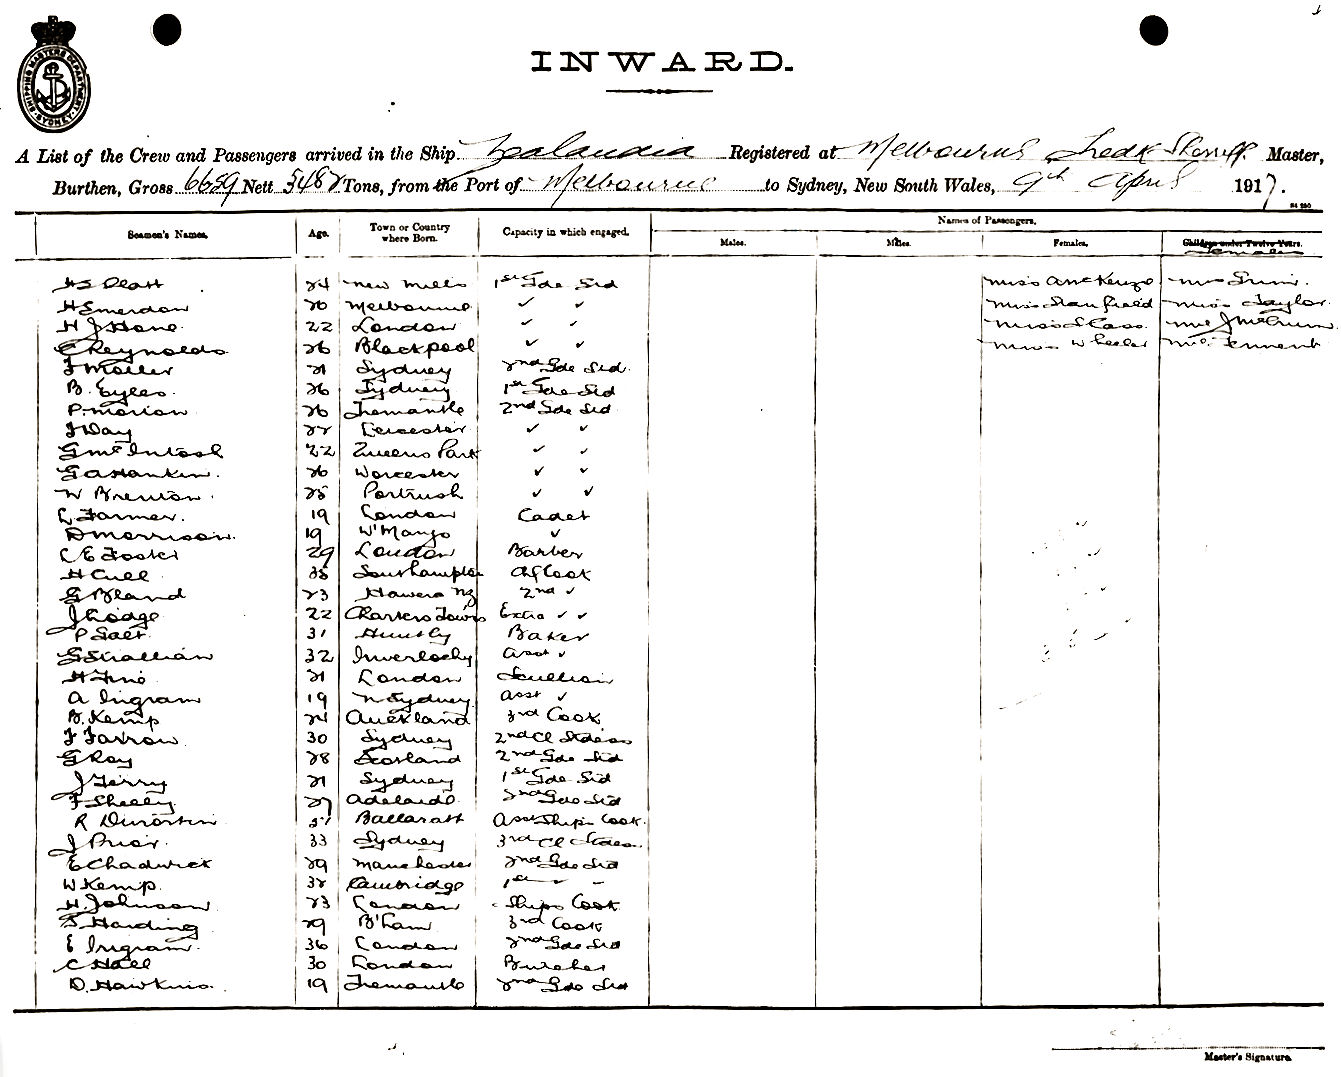 SHIPPING MASTERS DEPARTMENT SYDNEY
INWARD.
A List of the Crew and Passengers arrived in the Ship Zealandia Registered at Melbourne Fredk Sherriff Master,
Burthen, Gross 6659 Nett 5482 Tons, from the Port of Melbourne to Sydney, New South Wales, 9th April 1917.
Names of Passengers.
Seamen's Names. Age. Town or Country where Born. Capacity in which engaged. Males. Males. Females. Children under Twelve Years. Females
24 New Mills 1st Gde Std Miss A McKenzie Mrs
H Emerdon 26 Melbourne ✓ ✓ Miss Stanfield Miss Taylor
H J Hone 22 London ✓ ✓ Miss Mrs J
C Reynolds 26 Blackpool ✓ ✓ Miss Wheeler Mrs Tennent
F Moller 21 Sydney 2nd Gde Std
B. Eyles 26 Sydney 1st Gde Std
P. Marion 26 Fremantle 2nd Gde Std
J Day 22 Leicester ✓ ✓
G McIntosh 22 Queens Park ✓ ✓
G A Hankin 26 Worcester ✓ ✓
W Brenton 25 Portrush ✓ ✓
L Farmer 19 London Cadet
D Morrison 19 W'Mango ✓
C E Foster 29 London Barber
H Cull 35 Southampton Chf Cook
G Bland 23 Hawera NZ 2nd ✓
J Lodge 22 Charters Towers Extra ✓ ✓
P Salt 31 Huntly Baker
G Strallian 32 Inverlochy Asst ✓
H Fine 21 London Scullion
A Ingram 19 N Sydney Asst ✓
B. Kemp 24 Auckland 3rd Cook
F Farrow 30 Sydney 2nd Cl Stdess
G Roy 28 Scotland 2nd Gde Std
J Terry 21 Sydney 1st Gde Std
F Shelly 27 Adelaide 2nd Gde Std
R Ballaratt Asst Ships Cook
J Prior 33 Sydney 3rd Cl Stdess
E Chadwick 29 Manchester 2nd Gde Std
W Kemp 32 Cambridge 1st
H. Johnson 23 London Ships Cook
S Harding 29 B'ham 3rd Cook
E Ingram 36 London 2nd Gde Std
C Hall 30 London Butcher
D. Hawkins 19 Fremantle 2nd Gde Std
Master's Signature.